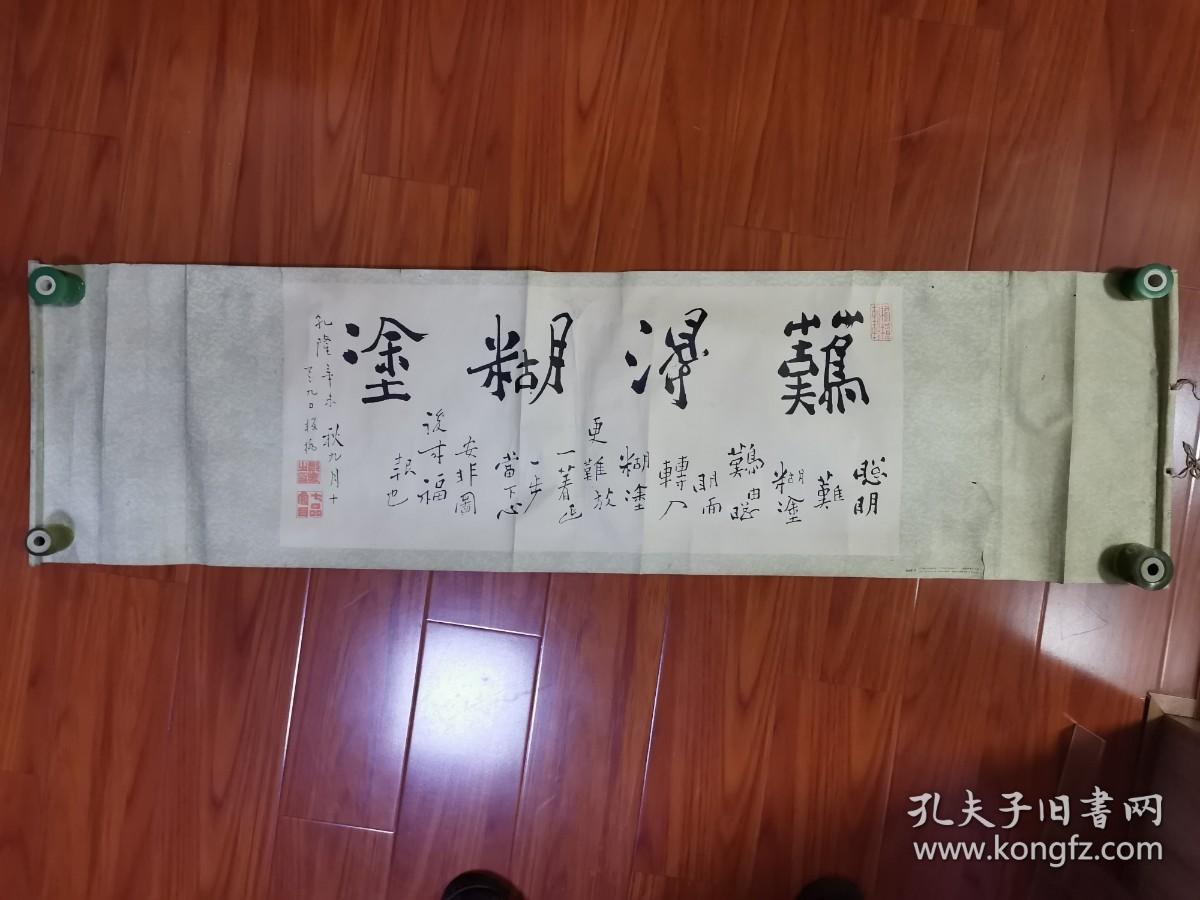 難得糊塗
聰明
難
糊塗
難由聰
明而
轉入
糊塗
更難放
一着退
一步
當下心
安非圖
後來福
報也
乾隆辛未秋九月十
有九日板橋
七品官耳
孔夫子旧書网
www.kongfz.com